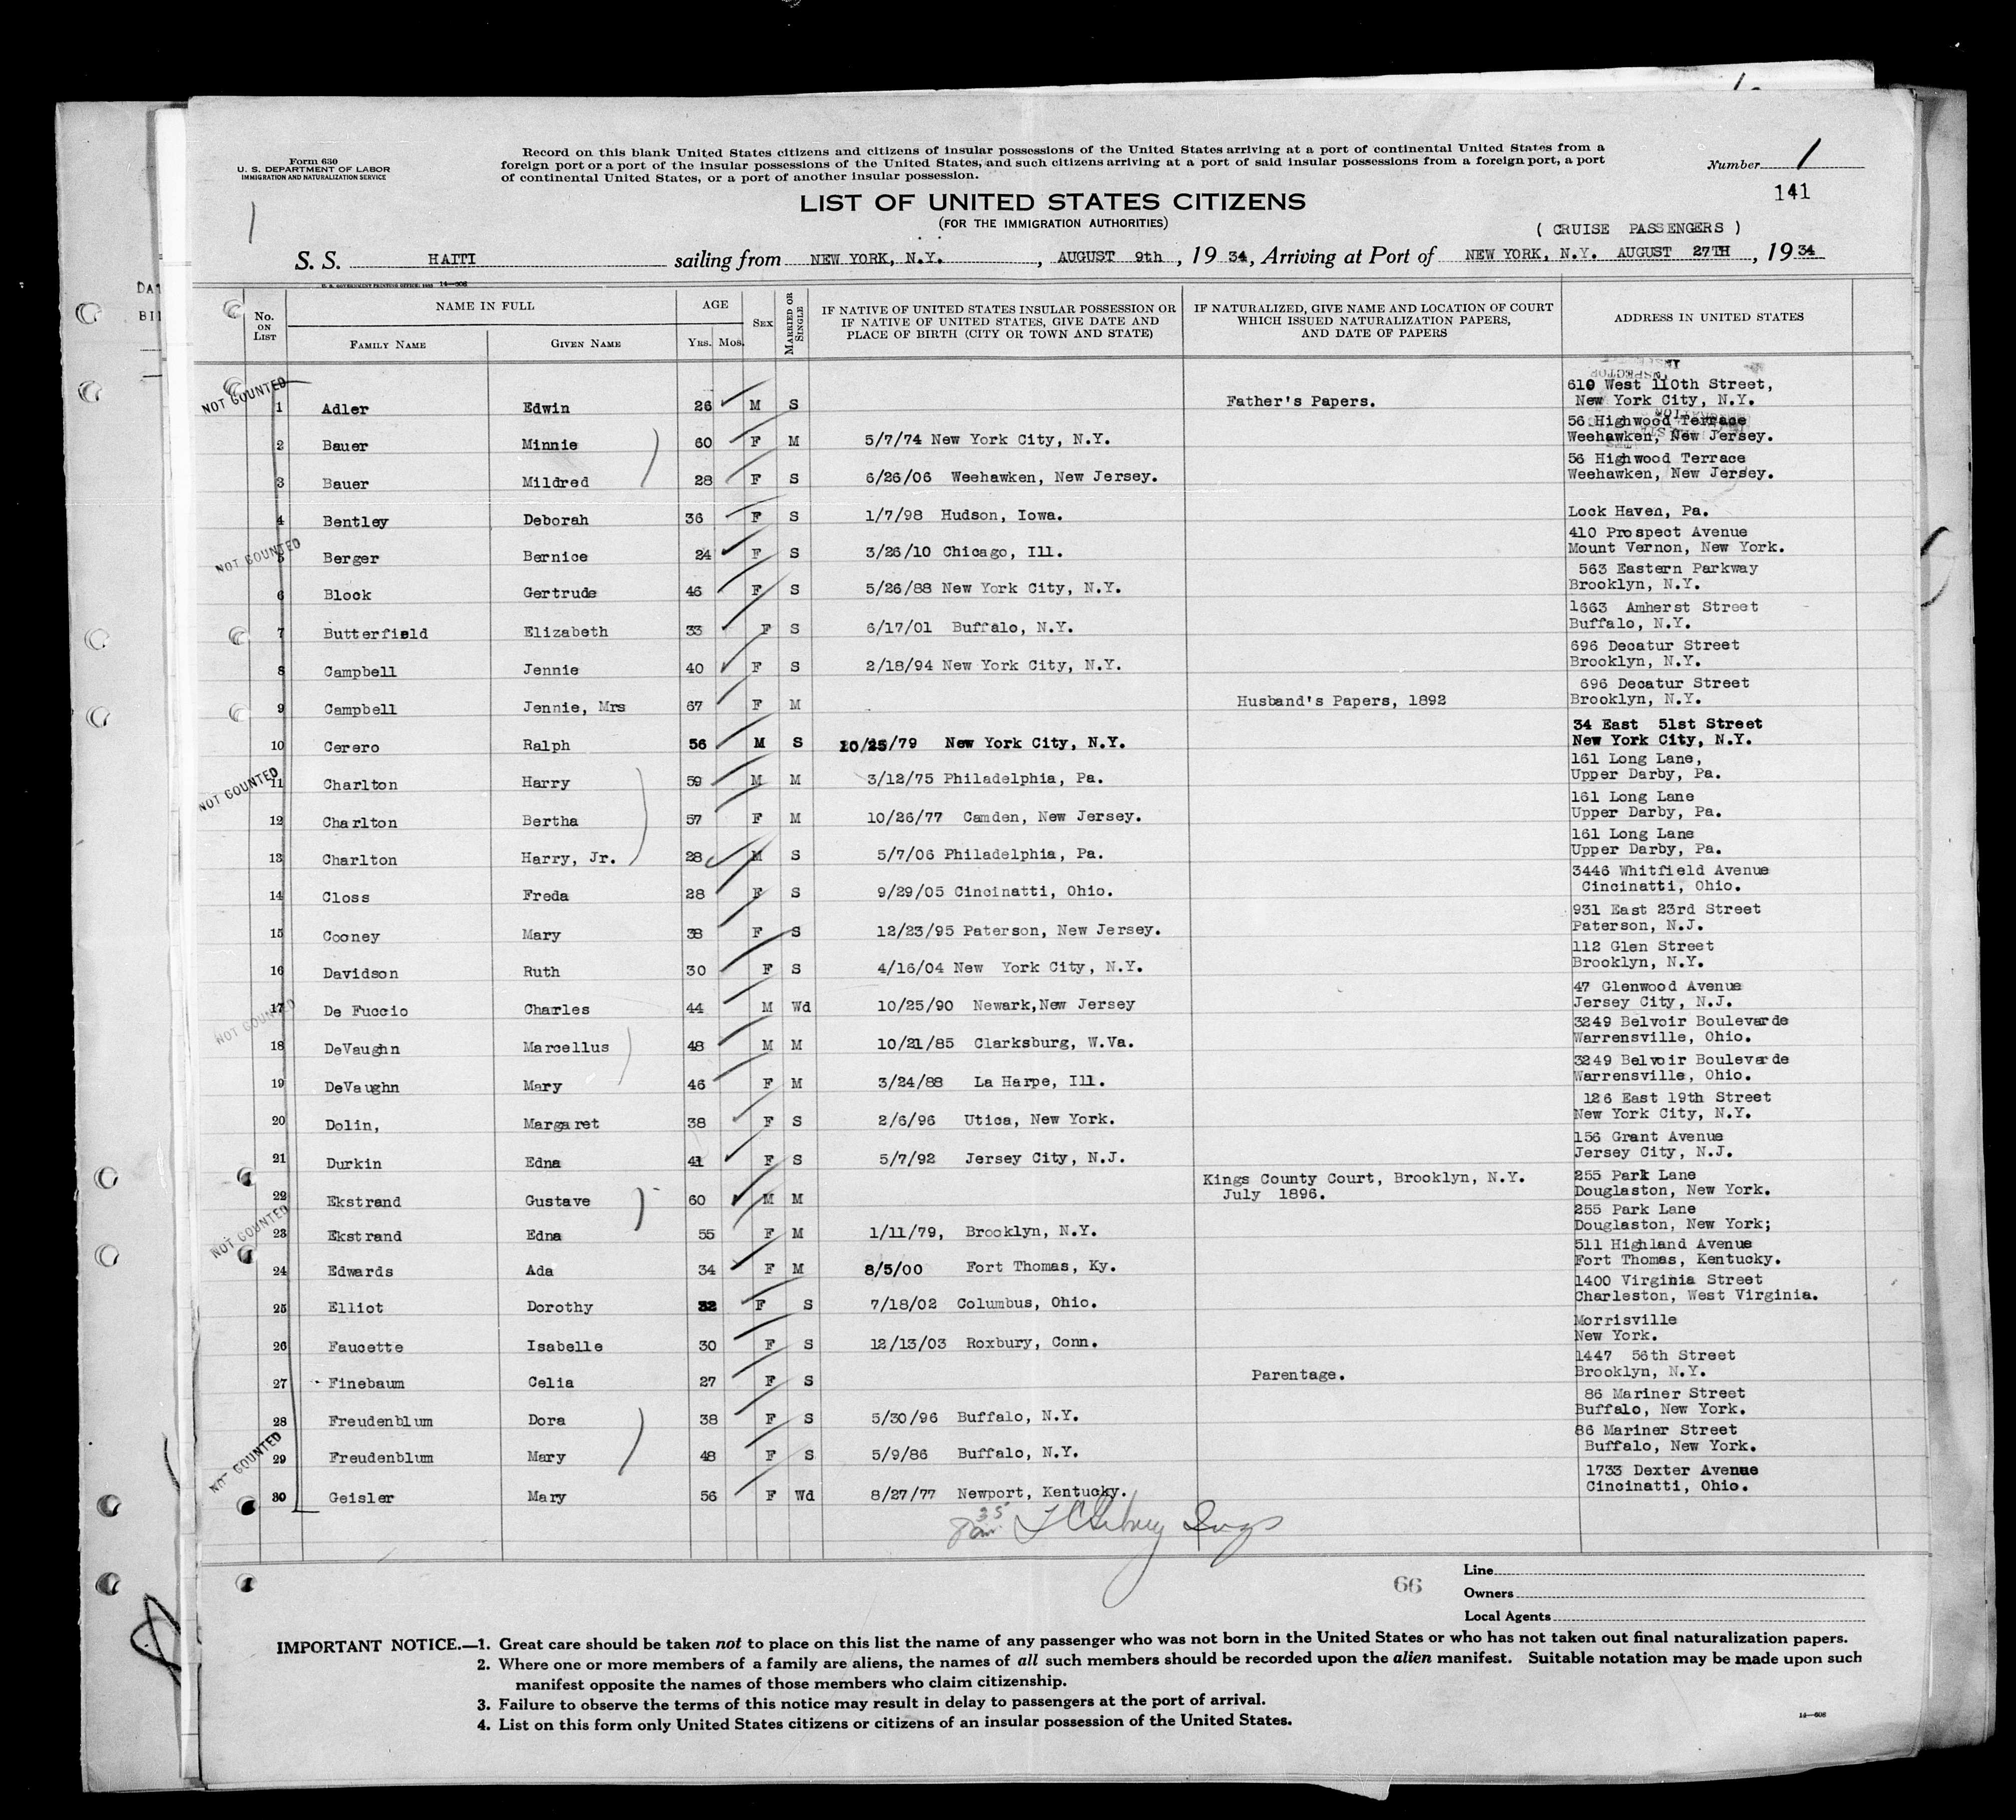 Form 630
U. S. DEPARTMENT OF LABOR
IMMIGRATION AND NATURALIZATION SERVICE
Record on this blank United States citizens and citizens of insular possessions of the United States arriving at a port of continental United States from a
foreign port or a port of the insular possessions of the United States, and such citizens arriving at a port of said insular possessions from a foreign port, a port
of continental United States, or a port of another insular possession.
Number 1
141
LIST OF UNITED STATES CITIZENS
(FOR THE IMMIGRATION AUTHORITIES)
( CRUISE PASSENGERS )
S. S. HAITI sailing from NEW YORK, N.Y. , AUGUST 9th , 19 34, Arriving at Port of NEW YORK, N.Y. AUGUST 27TH , 19 34
No. ON LIST
NAME IN FULL
FAMILY NAME GIVEN NAME
AGE
YRS. MOS.
SEX
MARRIED OR SINGLE
IF NATIVE OF UNITED STATES INSULAR POSSESSION OR
IF NATIVE OF UNITED STATES, GIVE DATE AND
PLACE OF BIRTH (CITY OR TOWN AND STATE)
IF NATURALIZED, GIVE NAME AND LOCATION OF COURT
WHICH ISSUED NATURALIZATION PAPERS,
AND DATE OF PAPERS
ADDRESS IN UNITED STATES
NOT COUNTED
610 West 110th Street,
1 Adler Edwin 26 M S Father's Papers. New York City, N.Y.
56 Highwood Terrace
2 Bauer Minnie 60 F M 5/7/74 New York City, N.Y. Weehawken, New Jersey.
56 Highwood Terrace
3 Bauer Mildred 28 F S 6/26/06 Weehawken, New Jersey. Weehawken, New Jersey.
4 Bentley Deborah 36 F S 1/7/98 Hudson, Iowa. Lock Haven, Pa.
NOT COUNTED
410 Prospect Avenue
5 Berger Bernice 24 F S 3/26/10 Chicago, Ill. Mount Vernon, New York.
563 Eastern Parkway
6 Block Gertrude 46 F S 5/26/88 New York City, N.Y. Brooklyn, N.Y.
1663 Amherst Street
7 Butterfield Elizabeth 33 F S 6/17/01 Buffalo, N.Y. Buffalo, N.Y.
696 Decatur Street
8 Campbell Jennie 40 F S 2/18/94 New York City, N.Y. Brooklyn, N.Y.
696 Decatur Street
9 Campbell Jennie, Mrs 67 F M Husband's Papers, 1892 Brooklyn, N.Y.
34 East 51st Street
10 Cerero Ralph 56 M S 10/25/79 New York City, N.Y. New York City, N.Y.
NOT COUNTED
161 Long Lane,
11 Charlton Harry 59 M M 3/12/75 Philadelphia, Pa. Upper Darby, Pa.
161 Long Lane
12 Charlton Bertha 57 F M 10/26/77 Camden, New Jersey. Upper Darby, Pa.
161 Long Lane
13 Charlton Harry, Jr. 28 M S 5/7/06 Philadelphia, Pa. Upper Darby, Pa.
3446 Whitfield Avenue
14 Closs Freda 28 F S 9/29/05 Cincinatti, Ohio. Cincinatti, Ohio.
931 East 23rd Street
15 Cooney Mary 38 F S 12/23/95 Paterson, New Jersey. Paterson, N.J.
112 Glen Street
16 Davidson Ruth 30 F S 4/16/04 New York City, N.Y. Brooklyn, N.Y.
NOT COUNTED
47 Glenwood Avenue
17 De Fuccio Charles 44 M Wd 10/25/90 Newark,New Jersey Jersey City, N.J.
3249 Belvoir Boulevarde
18 DeVaughn Marcellus 48 M M 10/21/85 Clarksburg, W.Va. Warrensville, Ohio.
3249 Belvoir Boulevarde
19 DeVaughn Mary 46 F M 3/24/88 La Harpe, Ill. Warrensville, Ohio.
126 East 19th Street
20 Dolin, Margaret 38 F S 2/6/96 Utica, New York. New York City, N.Y.
156 Grant Avenue
21 Durkin Edna 41 F S 5/7/92 Jersey City, N.J. Jersey City, N.J.
Kings County Court, Brooklyn, N.Y. 255 Park Lane
22 Ekstrand Gustave 60 M M July 1896. Douglaston, New York.
NOT COUNTED
255 Park Lane
23 Ekstrand Edna 55 F M 1/11/79, Brooklyn, N.Y. Douglaston, New York;
511 Highland Avenue
24 Edwards Ada 34 F M 8/5/00 Fort Thomas, Ky. Fort Thomas, Kentucky.
1400 Virginia Street
25 Elliot Dorothy 32 F S 7/18/02 Columbus, Ohio. Charleston, West Virginia.
Morrisville
26 Faucette Isabelle 30 F S 12/13/03 Roxbury, Conn. New York.
1447 56th Street
27 Finebaum Celia 27 F S Parentage. Brooklyn, N.Y.
86 Mariner Street
28 Freudenblum Dora 38 F S 5/30/96 Buffalo, N.Y. Buffalo, New York.
NOT COUNTED
86 Mariner Street
29 Freudenblum Mary 48 F S 5/9/86 Buffalo, N.Y. Buffalo, New York.
1733 Dexter Avenue
30 Geisler Mary 56 F Wd 8/27/77 Newport, Kentucky. Cincinatti, Ohio.
35
66
Line
Owners
Local Agents
IMPORTANT NOTICE.—1. Great care should be taken not to place on this list the name of any passenger who was not born in the United States or who has not taken out final naturalization papers.
2. Where one or more members of a family are aliens, the names of all such members should be recorded upon the alien manifest. Suitable notation may be made upon such
manifest opposite the names of those members who claim citizenship.
3. Failure to observe the terms of this notice may result in delay to passengers at the port of arrival.
4. List on this form only United States citizens or citizens of an insular possession of the United States.
14—608